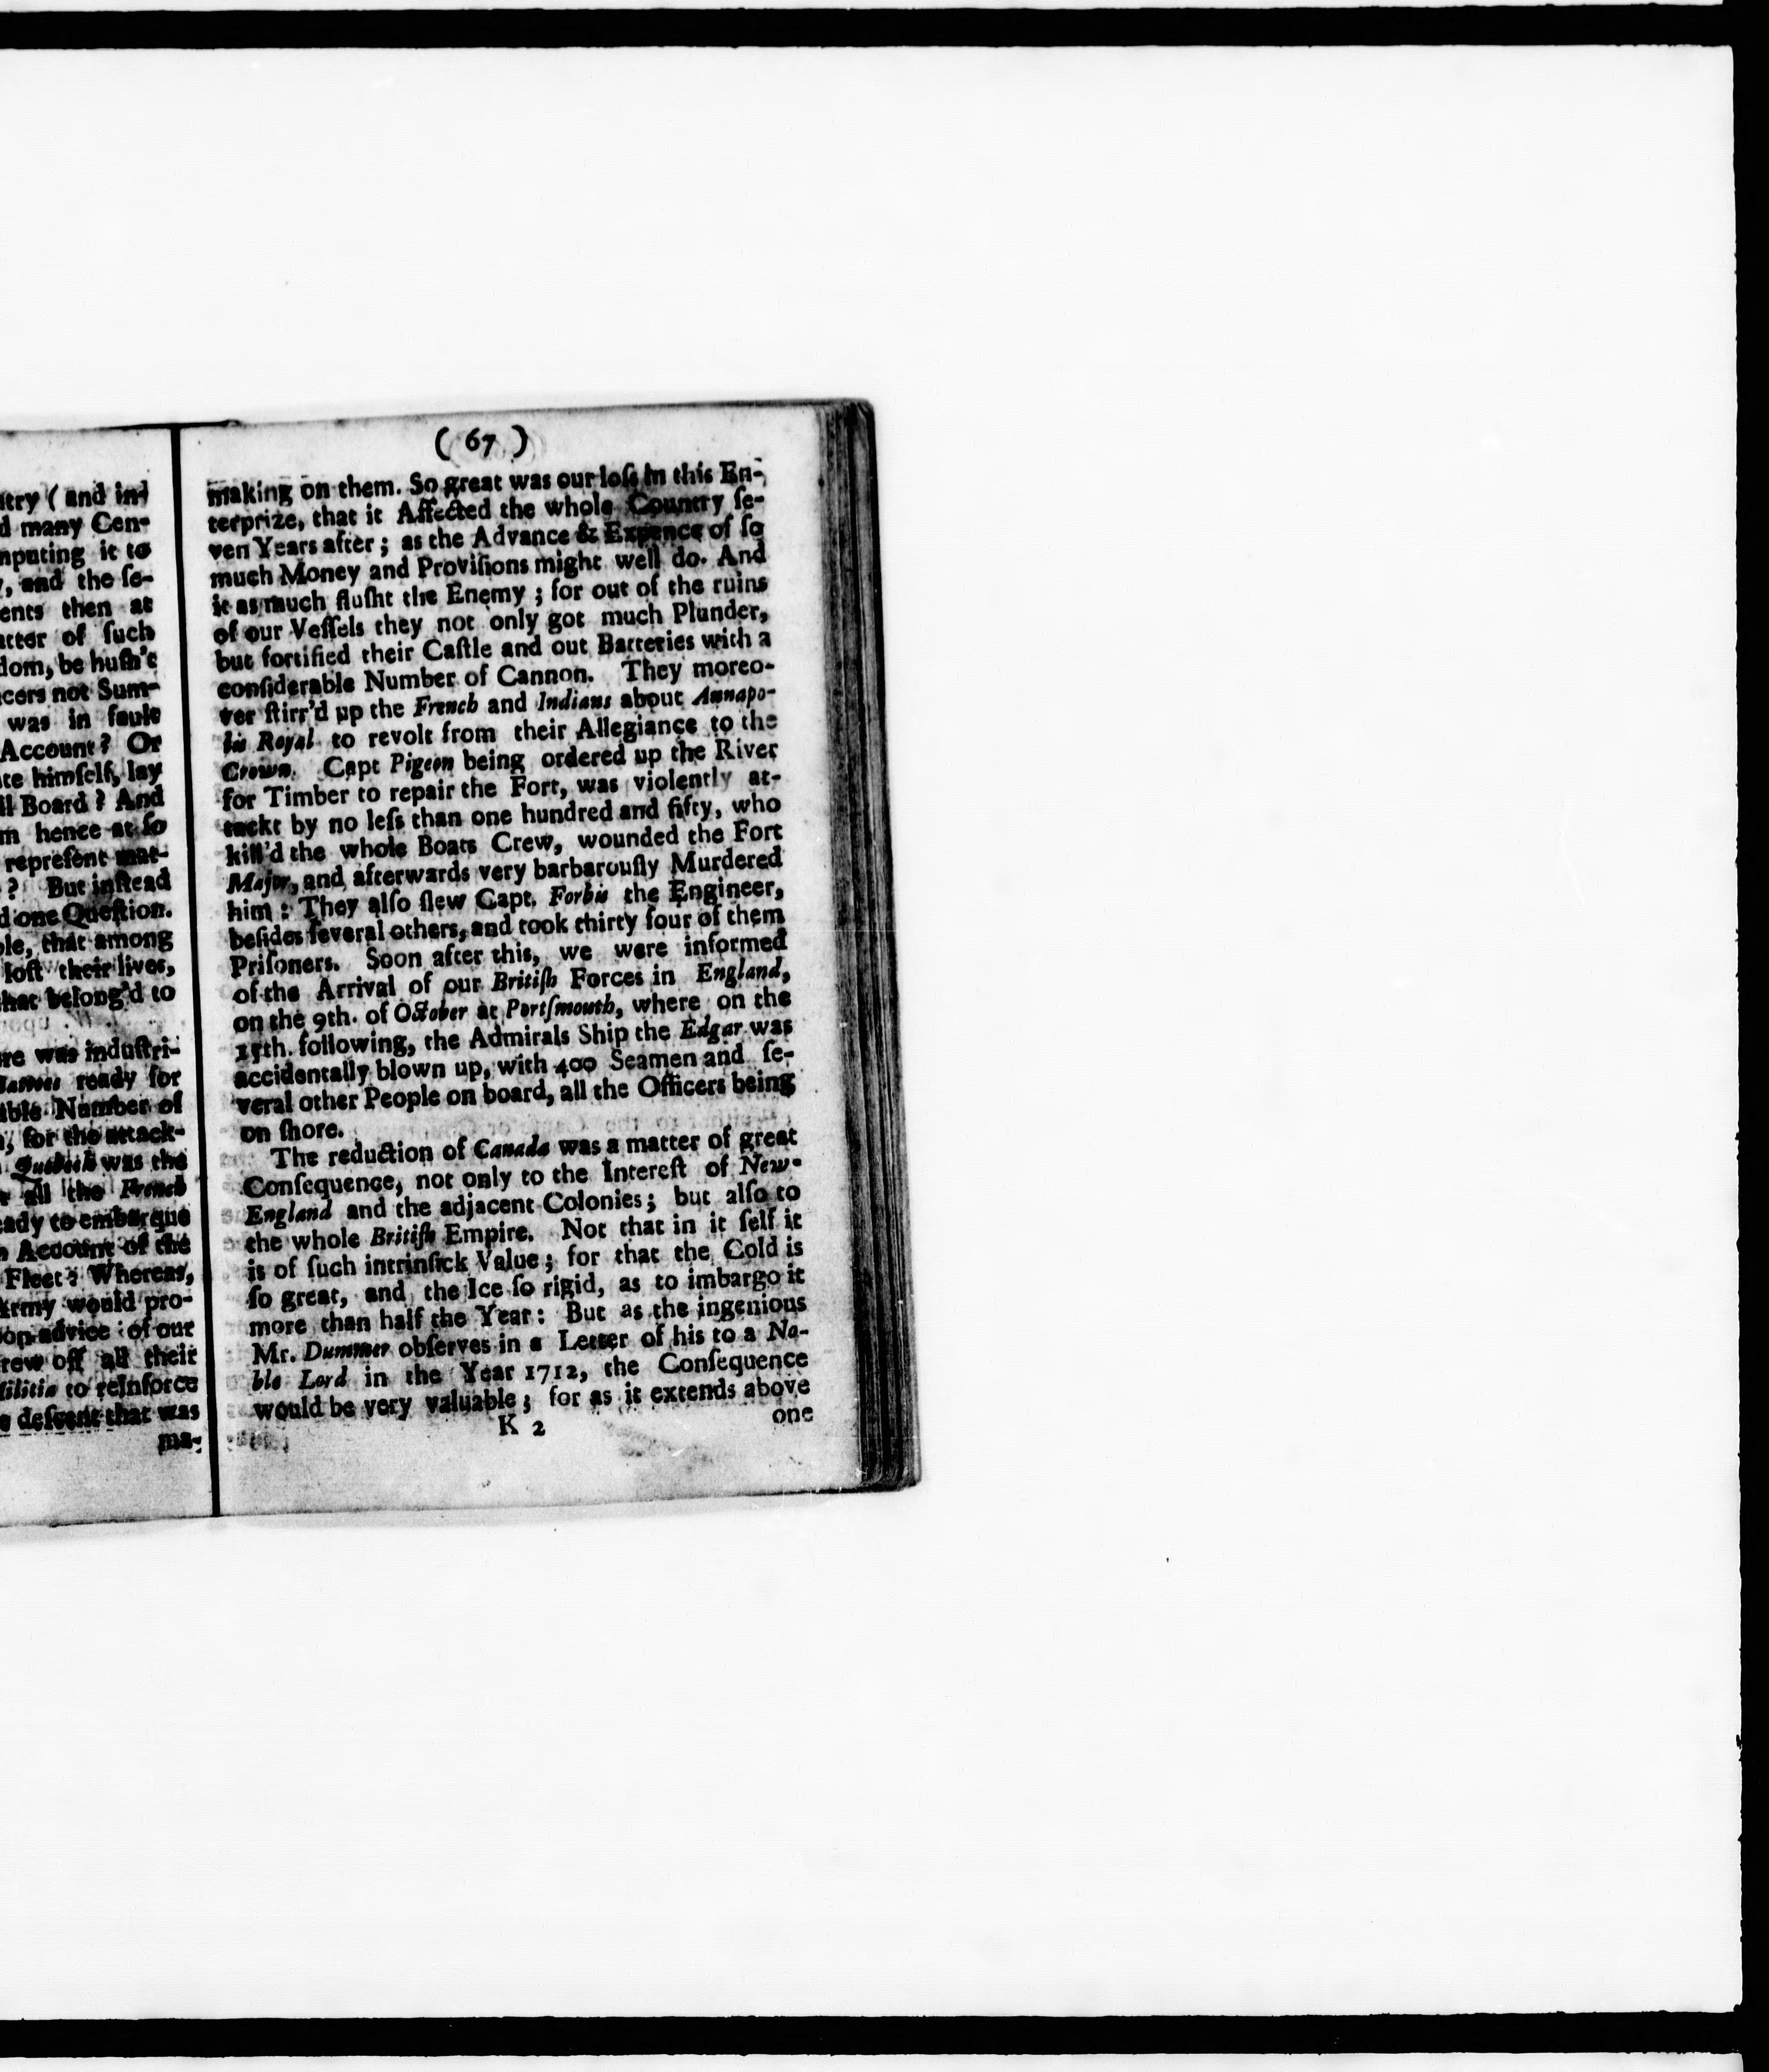 try ( and in-
d many Cen-
mputing it to
, and the ſe-
ents then at
atter of ſuch
dom, be huſh't
cers not Sum-
was in faule
Account? Or
te himſelf, lay
il Board? And
m hence at ſo
repreſent mat-
? But inſtead
d one Queſtion.
ble, that among
loſt their lives,
hat belong'd to
re was induſtri-
ready for
able Number of
, for the attack-
Quebeck was the
all the French
eady to embarque
Account of the
Fleet? Whereas,
Army would pro-
on advice of our
rew off all their
Militia to reinforce
deſcent that was
ma-
( 67 )
making on them. So great was our loſs in this En-
terprize, that it Affected the whole Country ſe-
ven Years after; as the Advance & Expence of ſo
much Money and Proviſions might well do. And
it as much fluſht the Enemy; for out of the ruins
of our Veſſels they not only got much Plunder,
but fortified their Caſtle and out Batteries with a
conſiderable Number of Cannon. They moreo-
ver ſtirr'd up the French and Indians about Annapo-
lis Royal to revolt from their Allegiance to the
Crown. Capt Pigeon being ordered up the River
for Timber to repair the Fort, was violently at-
tackt by no leſs than one hundred and fifty, who
kill'd the whole Boats Crew, wounded the Fort
Major, and afterwards very barbarouſly Murdered
him: They alſo ſlew Capt. Forbis the Engineer,
beſides ſeveral others, and took thirty four of them
Priſoners. Soon after this, we were informed
of the Arrival of our Britiſh Forces in England,
on the 9th. of October at Portſmouth, where on the
15th. following, the Admirals Ship the Edgar was
accidentally blown up, with 400 Seamen and ſe-
veral other People on board, all the Officers being
on ſhore.
The reduction of Canada was a matter of great
Conſequence, not only to the Intereſt of New-
England and the adjacent Colonies; but alſo to
the whole Britiſh Empire. Not that in it ſelf it
is of ſuch intrinſick Value; for that the Cold is
ſo great, and the Ice ſo rigid, as to imbargo it
more than half the Year: But as the ingenious
Mr. Dummer obſerves in a Letter of his to a No-
ble Lord in the Year 1712, the Conſequence
would be very valuable; for as it extends above
K 2
one